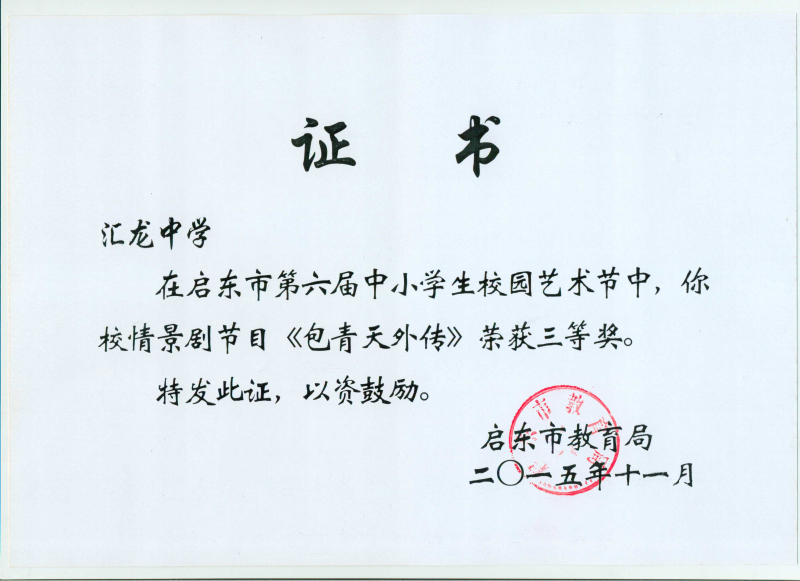 证书
汇龙中学
在启东市第六届中小学生校园艺术节中，你
校情景剧节目《包青天外传》荣获三等奖。
特发此证，以资鼓励。
启东市教育局
二〇一五年十一月
市教育局